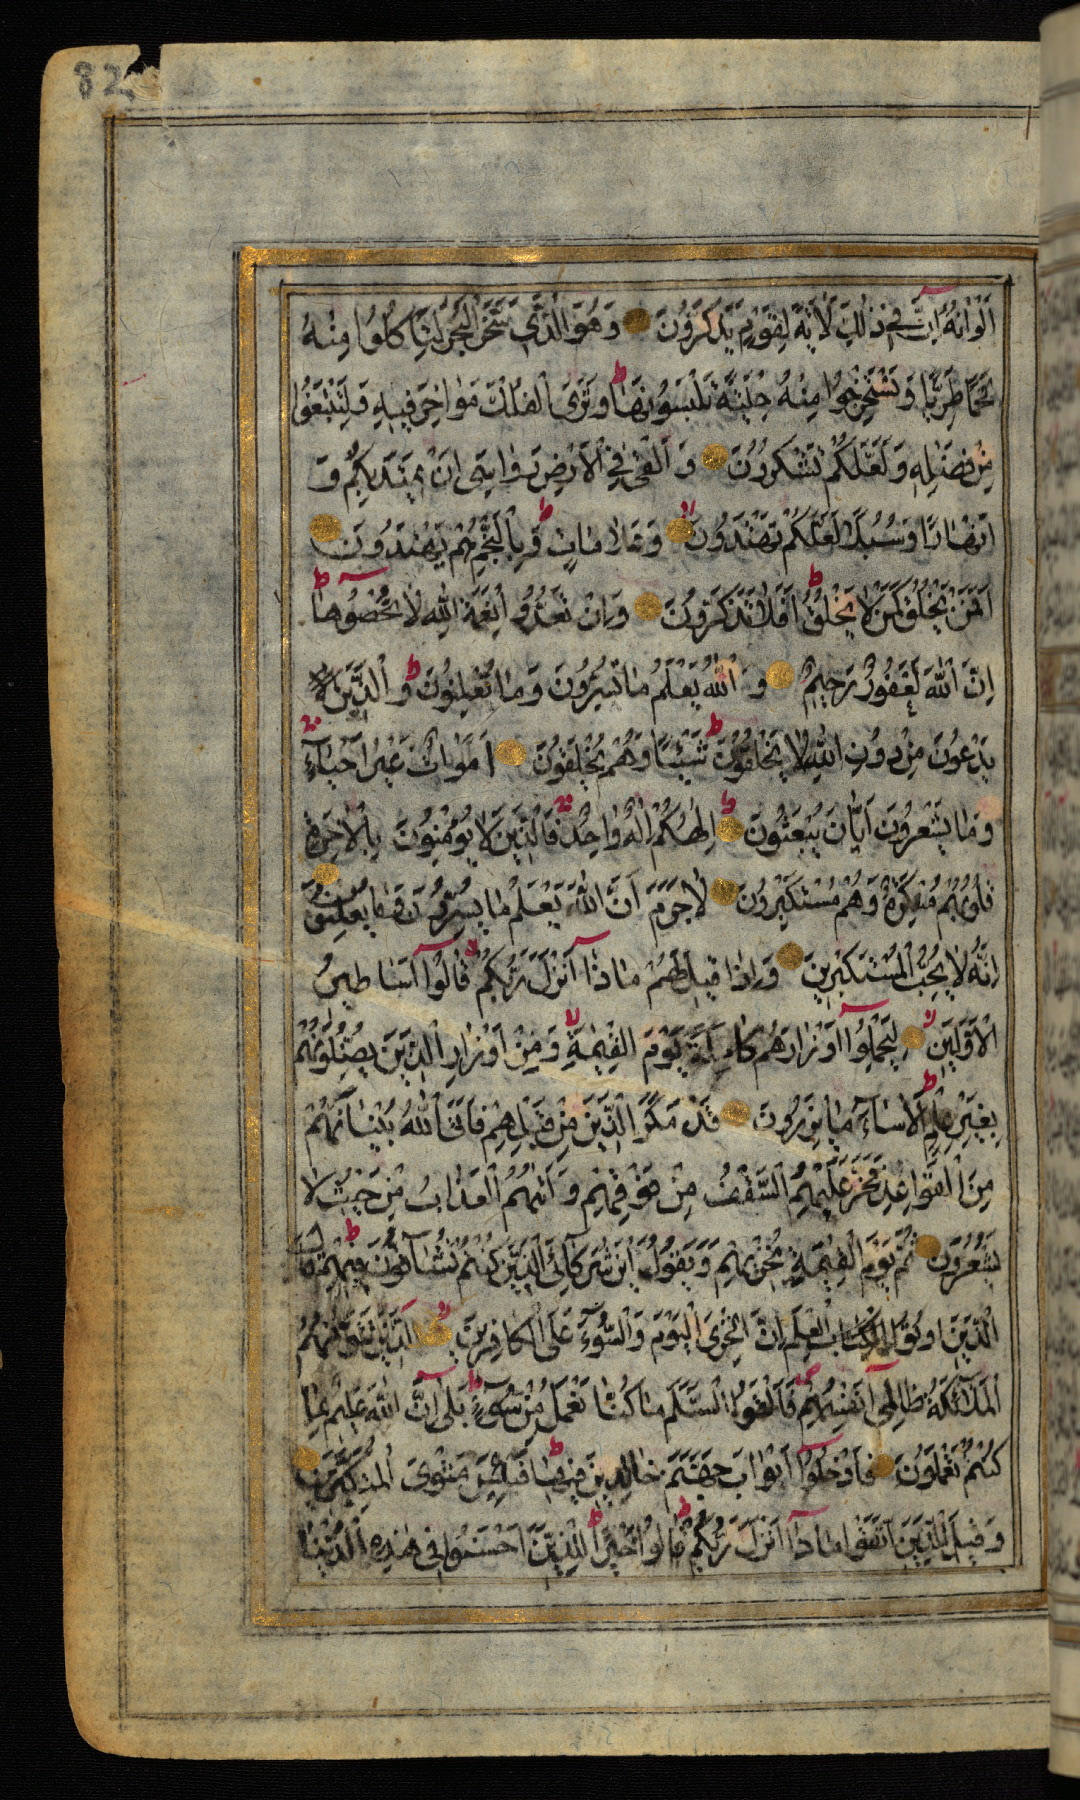 82
اَلْوَانُهُ اِنَّ فِي ذٰلِكَ لَاٰيَةً لِقَوْمٍ يَذَّكَّرُونَ وَهُوَ الَّذِي سَخَّرَ الْبَحْرَ لِتَأْكُلُوا مِنْهُ
لَحْمًا طَرِيًّا وَتَسْتَخْرِجُوا مِنْهُ حِلْيَةً تَلْبَسُونَهَا ط وَتَرَى الْفُلْكَ مَوَاخِرَ فِيهِ وَلِتَبْتَغُوا
مِنْ فَضْلِهِ وَلَعَلَّكُمْ تَشْكُرُونَ وَاَلْقٰى فِي الْاَرْضِ رَوَاسِيَ اَنْ تَمِيدَ بِكُمْ وَ
اَنْهَارًا وَسُبُلًا لَعَلَّكُمْ تَهْتَدُونَ لا وَعَلَامَاتٍ ط وَبِالنَّجْمِ هُمْ يَهْتَدُونَ
اَفَمَنْ يَخْلُقُ كَمَنْ لَا يَخْلُقُ ط اَفَلَا تَذَكَّرُونَ وَاِنْ تَعُدُّوا نِعْمَةَ اللّٰهِ لَا تُحْصُوهَا ط
اِنَّ اللّٰهَ لَغَفُورٌ رَحِيمٌ وَاللّٰهُ يَعْلَمُ مَا تُسِرُّونَ وَمَا تُعْلِنُونَ ط وَالَّذِينَ
يَدْعُونَ مِنْ دُونِ اللّٰهِ لَا يَخْلُقُونَ شَيْئًا وَهُمْ يُخْلَقُونَ ط اَمْوَاتٌ غَيْرُ اَحْيَآءٍ
وَمَا يَشْعُرُونَ اَيَّانَ يُبْعَثُونَ ط اِلٰهُكُمْ اِلٰهٌ وَاحِدٌ فَالَّذِينَ لَا يُؤْمِنُونَ بِالْاٰخِرَةِ
قُلُوبُهُمْ مُنْكِرَةٌ وَهُمْ مُسْتَكْبِرُونَ لَا جَرَمَ اَنَّ اللّٰهَ يَعْلَمُ مَا يُسِرُّونَ وَمَا يُعْلِنُونَ
اِنَّهُ لَا يُحِبُّ الْمُسْتَكْبِرِينَ وَاِذَا قِيلَ لَهُمْ مَاذَآ اَنْزَلَ رَبُّكُمْ لا قَالُوآ اَسَاطِيرُ
الْاَوَّلِينَ لا لِيَحْمِلُوآ اَوْزَارَهُمْ كَامِلَةً يَوْمَ الْقِيٰمَةِ لا وَمِنْ اَوْزَارِ الَّذِينَ يُضِلُّونَهُمْ
بِغَيْرِ عِلْمٍ ط اَلَا سَآءَ مَا يَزِرُونَ قَدْ مَكَرَ الَّذِينَ مِنْ قَبْلِهِمْ فَاَتَى اللّٰهُ بُنْيَانَهُمْ
مِنَ الْقَوَاعِدِ فَخَرَّ عَلَيْهِمُ السَّقْفُ مِنْ فَوْقِهِمْ وَاَتٰيهُمُ الْعَذَابُ مِنْ حَيْثُ لَا
يَشْعُرُونَ ثُمَّ يَوْمَ الْقِيٰمَةِ يُخْزِيهِمْ وَيَقُولُ اَيْنَ شُرَكَآئِيَ الَّذِينَ كُنْتُمْ تُشَآقُّونَ فِيهِمْ ط قَالَ
الَّذِينَ اُوتُوا الْعِلْمَ اِنَّ الْخِزْيَ الْيَوْمَ وَالسُّوٓءَ عَلَى الْكَافِرِينَ لا اَلَّذِينَ تَتَوَفّٰيهُمُ
الْمَلَآئِكَةُ ظَالِمِيٓ اَنْفُسِهِمْ فَاَلْقَوُا السَّلَمَ مَا كُنَّا نَعْمَلُ مِنْ سُوٓءٍ ط بَلٰى اِنَّ اللّٰهَ عَلِيمٌ بِمَا
كُنْتُمْ تَعْمَلُونَ فَادْخُلُوآ اَبْوَابَ جَهَنَّمَ خَالِدِينَ فِيهَا ط فَلَبِئْسَ مَثْوَى الْمُتَكَبِّرِينَ
وَقِيلَ لِلَّذِينَ اتَّقَوْا مَاذَآ اَنْزَلَ رَبُّكُمْ ط قَالُوا خَيْرًا ط لِلَّذِينَ اَحْسَنُوا فِي هٰذِهِ الدُّنْيَا